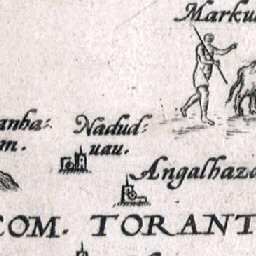 Marku
anha:
m.
Nadud:
uau.
Angalhaza
COM. TORANT